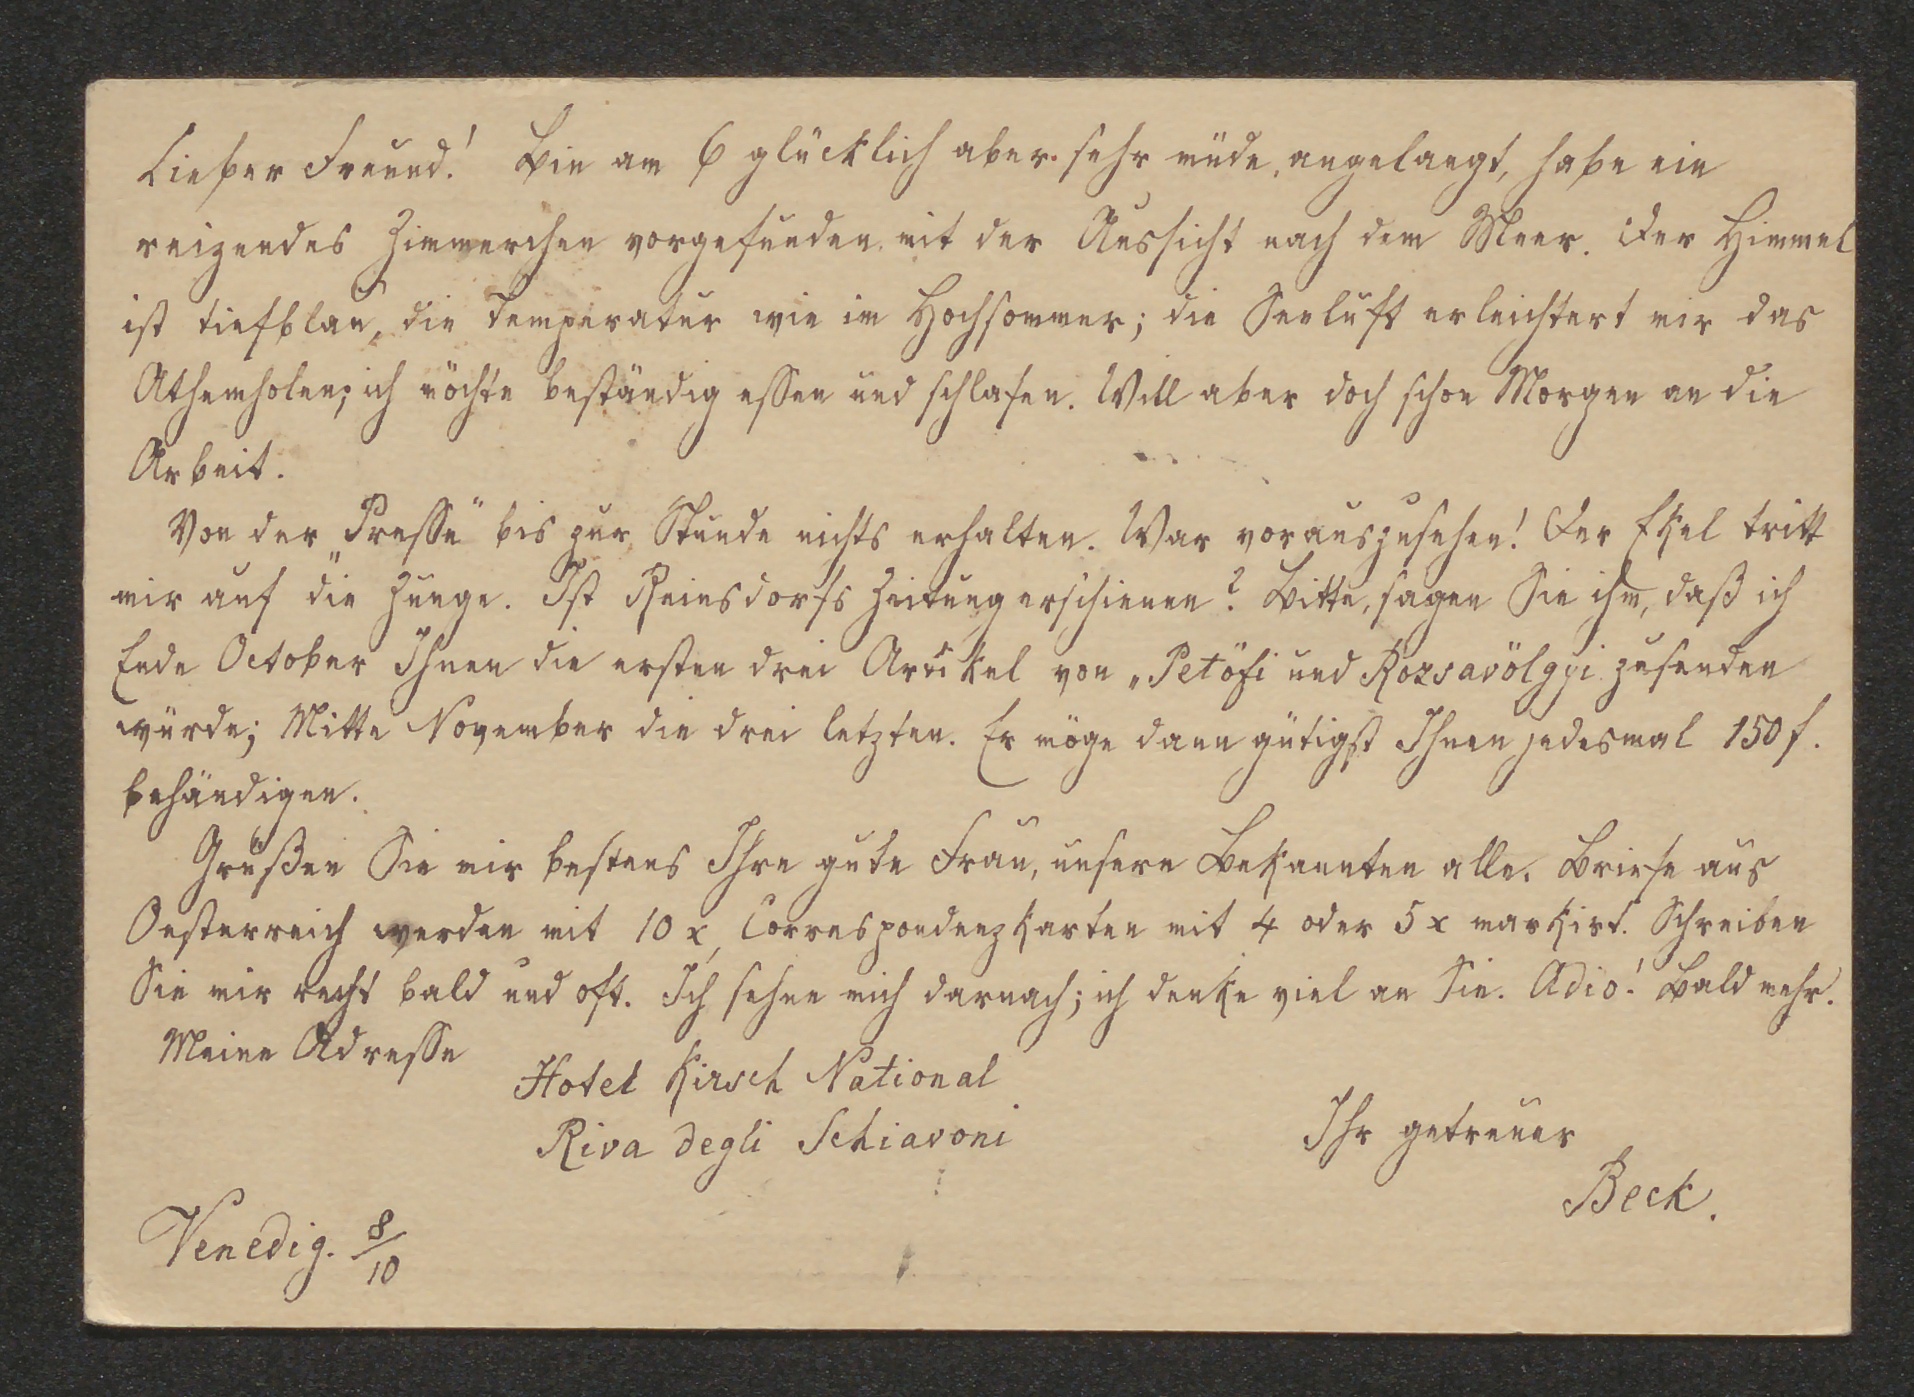 Lieber Freund! Bin am 6 glücklich aber sehr müde, angelangt, habe ein
reizendes Zimmerchen vorgefunden mit der Aussicht nach dem Meer. Der Himmel
ist tiefblau, die Temperatur wie im Hochsommer; die Seeluft erleichtert mir das
Athemholen; ich möchte beständig essen und schlafen. Will aber doch schon Morgen an die
Arbeit.
Von der „Presse" bis zur Stunde nichts erhalten. War vorauszusehen! Der Ekel tritt
mir auf die Zunge. Ist Reinsdorfs Zeitung erschienen? Bitte, sagen Sie ihm, daß ich
Ende October Ihnen die ersten drei Artikel von „Petöfi und Rozsavölgyi zusenden
würde; Mitte November die drei letzten. Er möge dann gütigst Ihnen jedesmal 150 f.
behändigen.
Grüßen Sie mir bestens Ihre gute Frau, unsere Bekannten alle. Briefe aus
Oesterreich werden mit 10 x, Correspondenzkarten mit 4 oder 5 x markirt. Schreiben
Sie mir recht bald und oft. Ich sehne mich darnach; ich denke viel an Sie. Adio! Bald mehr.
Meine Adresse
Hotel Kirsch National
Riva degli Schiavoni
Ihr getreuer
Beck.
Venedig. 8/10